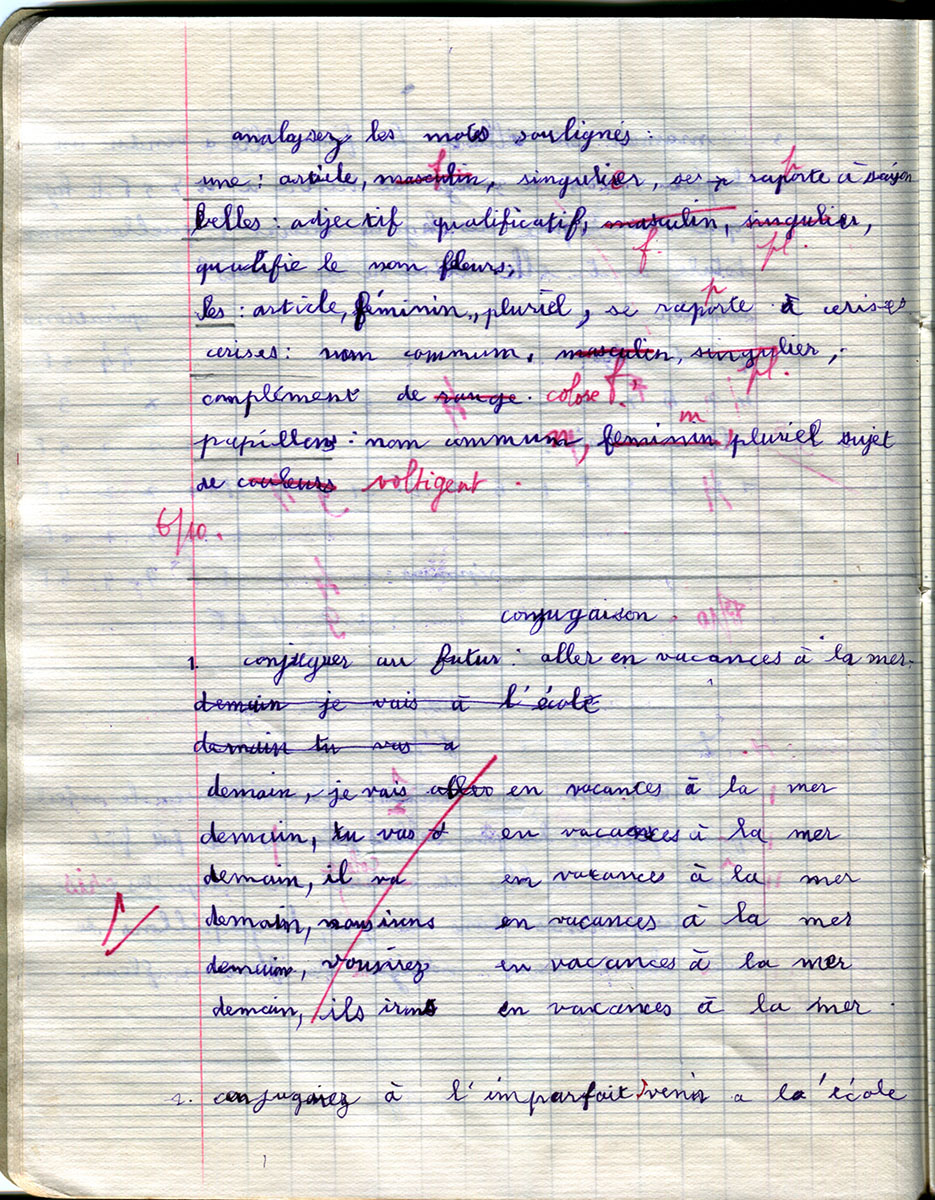 analysez les mots soulignés :
une : article, masculin, singulier, se raporte à
f p
belles : adjectif qualificatif, masculin, singulier,
f. pl.
qualifie le nom fleurs,
les : article, féminin, pluriel, se raporte à cerises
p
cerises : nom commum, masculin, singulier,
f. pl.
complément de rouge. colore
papillons : nom commum, feminin pluriel sujet
m
de couleurs voltigent.
6/10.
conjugaison.
1. conjuguer au futur : aller en vacances à la mer.
demain je vais à l'école
demain tu vas a
demain, je vais aller en vacances à la mer
demain, tu vas en vacances à la mer
demain, il va en vacances à la mer
demain, nous irons en vacances à la mer
demain, vous irez en vacances à la mer
demain, ils irons en vacances à la mer.
2. conjugaiez à l'imparfait : venir a la école